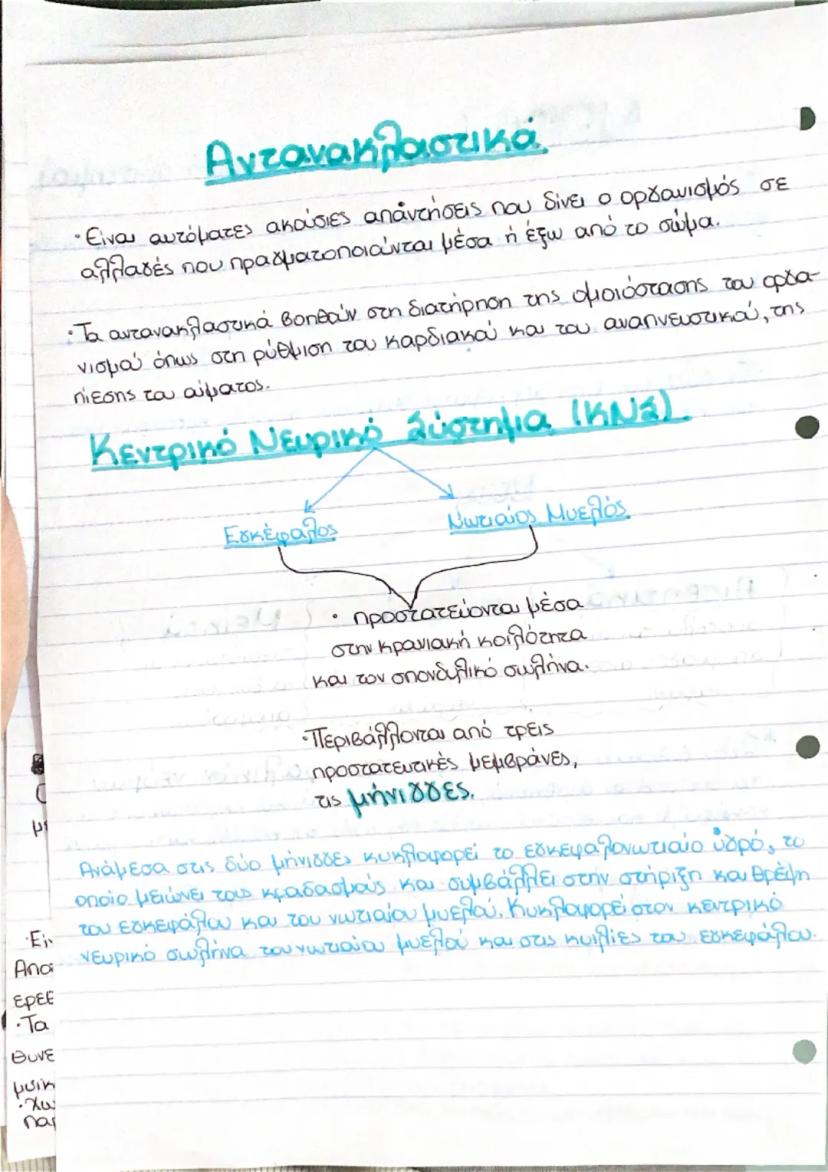 Αντανακλαστικά
· Είναι αυτόματες ακούσιες απαντήσεις που δίνει ο οργανισμός σε
αλλαγές που πραγματοποιούνται μέσα ή έξω από το σώμα.
· Τα αντανακλαστικά βοηθούν στη διατήρηση της ομοιόστασης του οργα-
νισμού όπως στη ρύθμιση του καρδιακού και του αναπνευστικού, της
πίεσης του αίματος.
Κεντρικό Νευρικό Σύστημα (ΚΝΣ).
Εγκέφαλος Νωτιαίος Μυελός
· προστατεύονται μέσα
στην κρανιακή κοιλότητα
και τον σπονδυλικό σωλήνα.
· Περιβάλλονται από τρεις
προστατευτικές μεμβράνες,
τις μήνιγγες.
Ανάμεσα στις δύο μήνιγγες κυκλοφορεί το εγκεφαλονωτιαίο υγρό, το
οποίο μειώνει τους κραδασμούς και συμβάλλει στην στήριξη και θρέψη
του εγκεφάλου και του νωτιαίου μυελού. Κυκλοφορεί στον κεντρικό
νευρικό σωλήνα του νωτιαίου μυελού και στις κοιλίες του εγκεφάλου.
· Είν
Απο
ερεε
· Τα
θυνε
μυϊκ